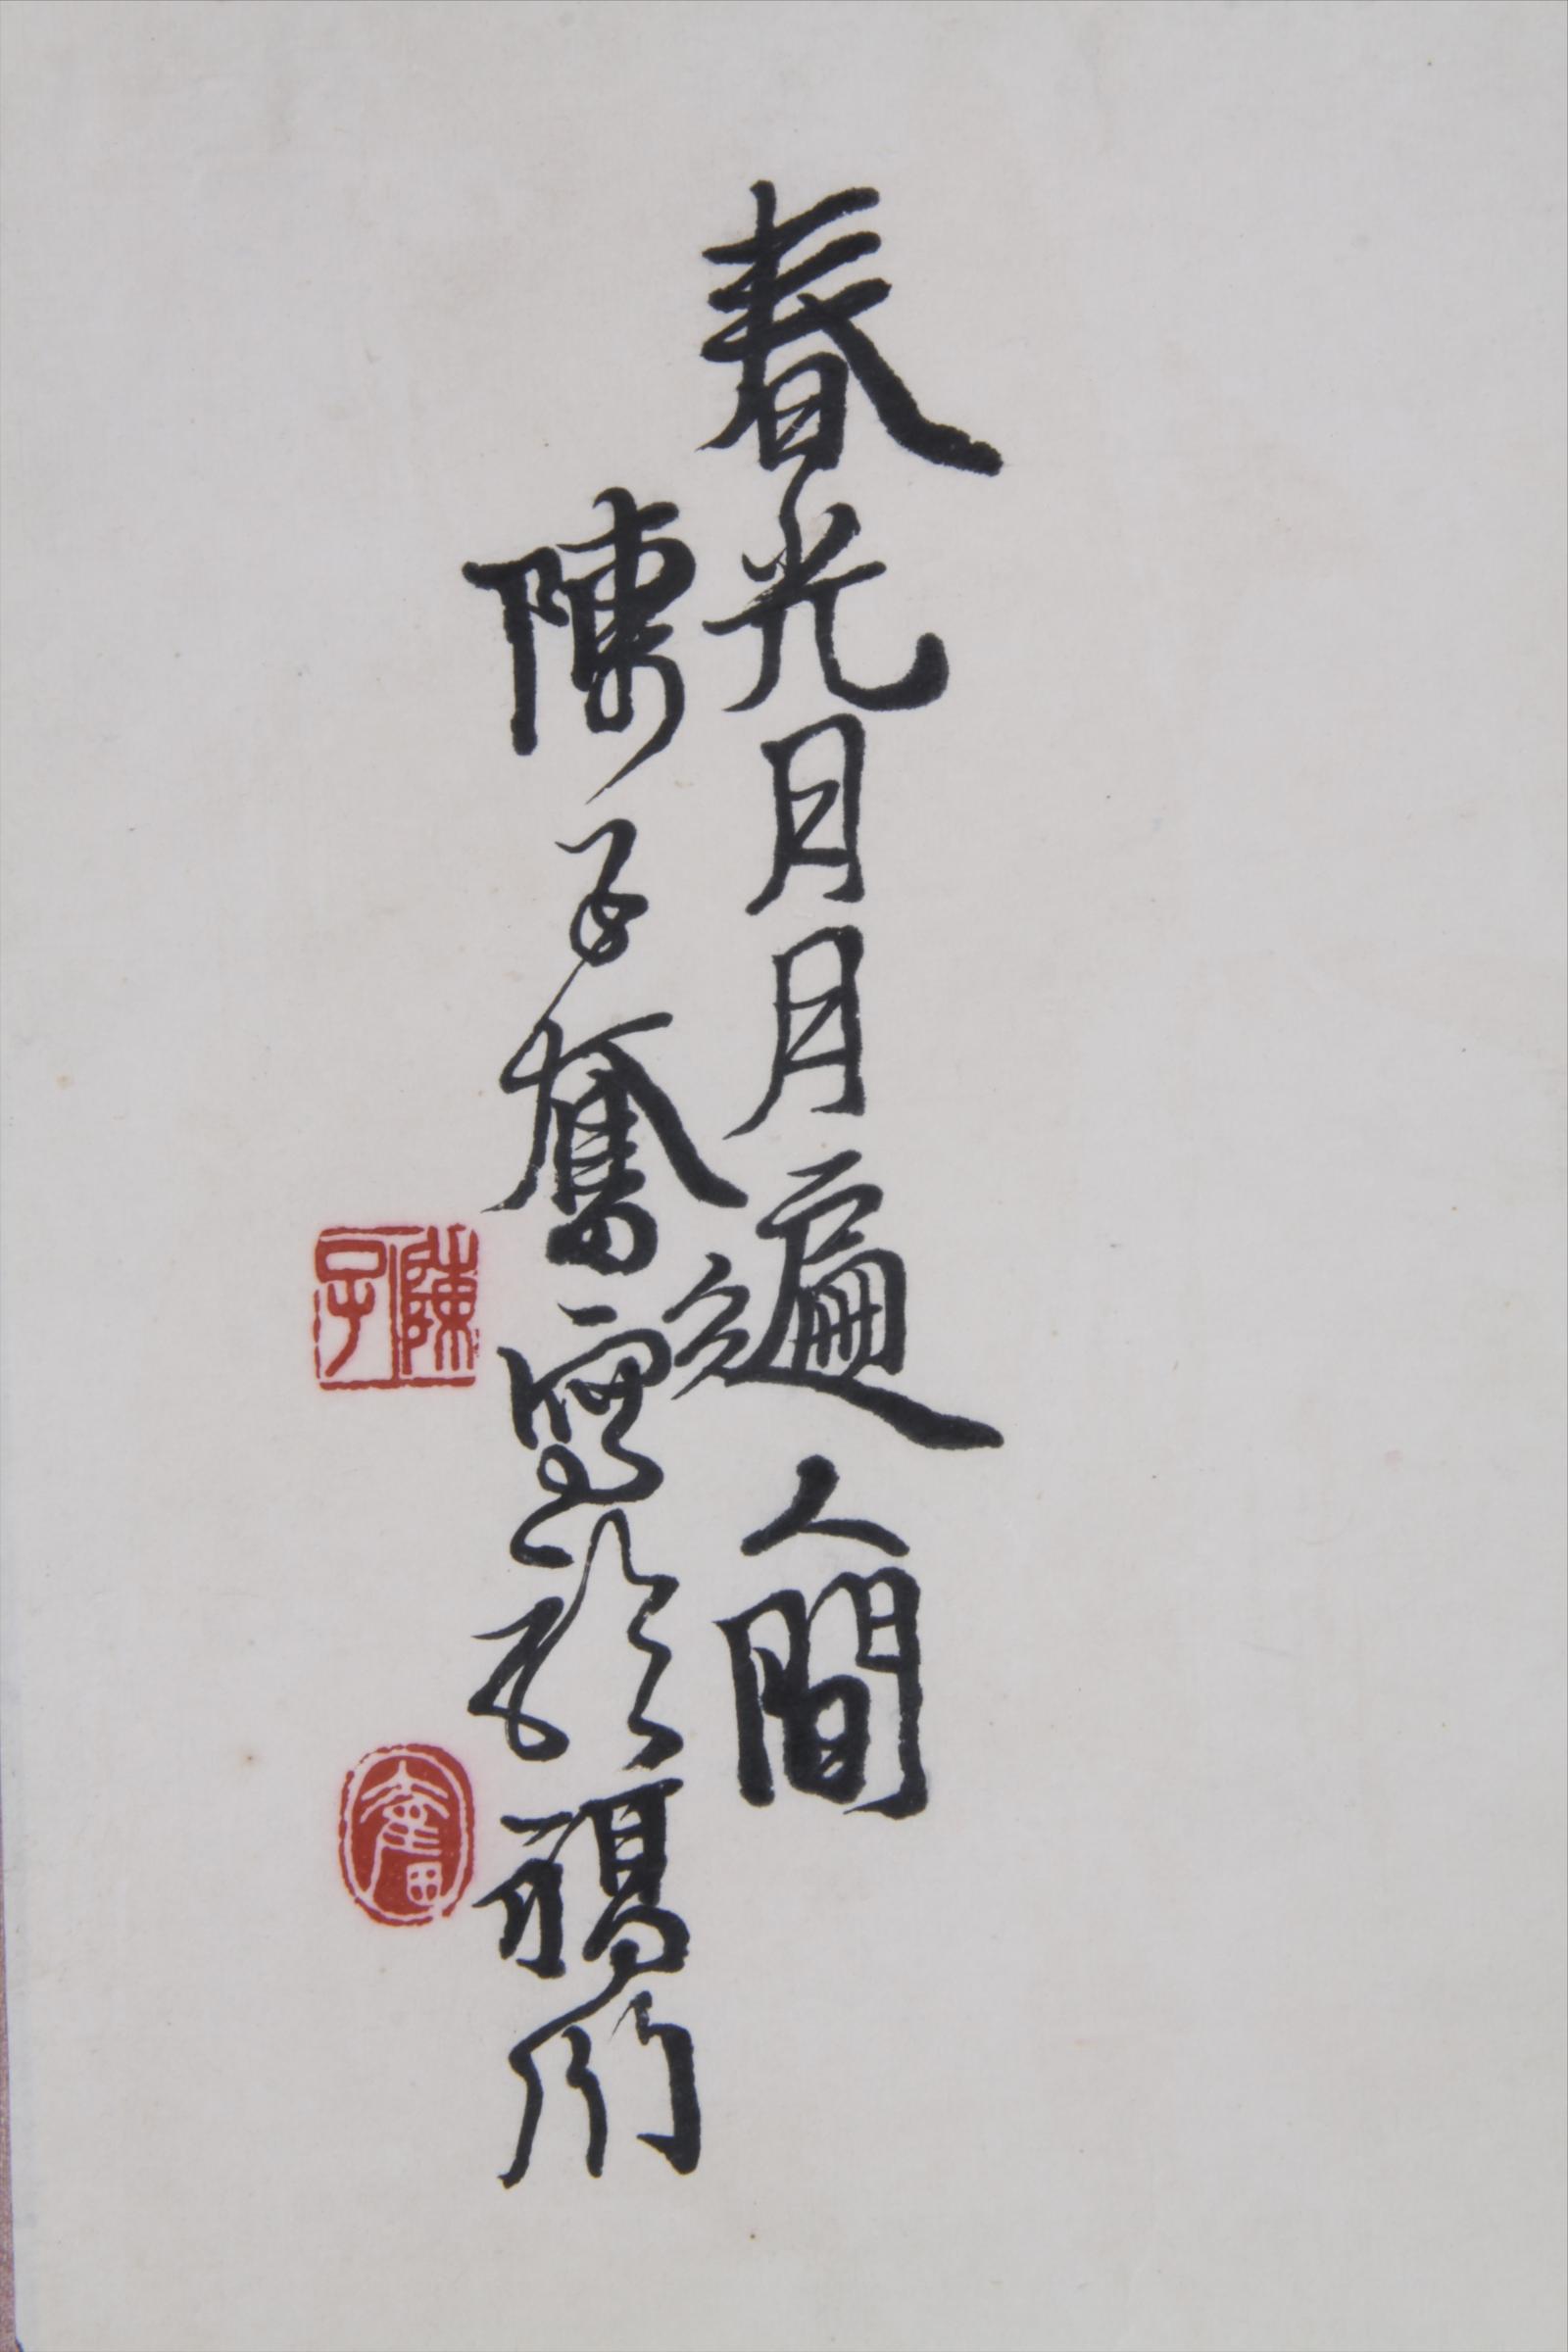 春光月月遍人間
陳子奮寫於福州
陳子
奮